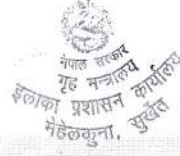 नेपाल सरकार
गृह मन्त्रालय
इलाका प्रशासन कार्यालय
मेहेलकुना, सुर्खेत